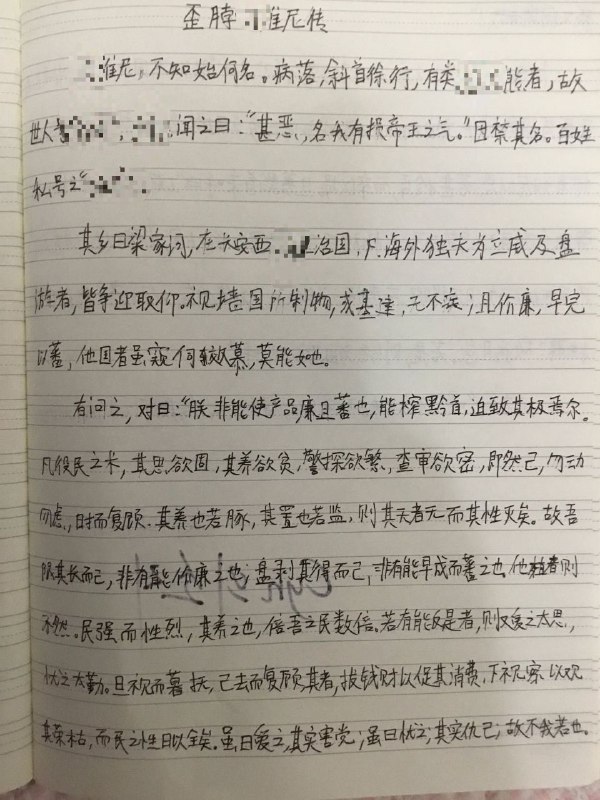 歪脖 维尼传
维尼,不知始何名。病落,斜首徐行,有类 熊者,故
世人 , 闻之曰:“甚恶,名我有损帝王之气。”因禁其名。百姓
私号之“ ”。
其乡曰梁家河,在长安西 治国,凡海外独夫为立威及盘
游者,皆争迎取仰。视墙国所制物,或基建,无不宏;且价廉,早完
以蕃,他国者虽窥伺效慕,莫能如也。
有问之,对曰:“朕非能使产品廉且蕃也,能榨黔首,迫致其极焉尔。
凡役民之术,其思欲固,其养欲贫,警探欲繁,查审欲密,即然已,勿动
勿虑,日时而复顾。其养也若豚,其置也若监,则其天者无而其性灭矣。故吾
限其长而已,非有能价廉之也;盘剥其得而已,非有能早成而蕃之也。他植者则
不然。民强而性烈,其养之也,倍吾之民数倍。若有能反是者,则又爱之太恩,
忧之太勤。旦视而暮抚,已去而复顾,其者,拔钱财以促其消费,下视察以观
其荣枯,而民之性日以全矣。虽曰爱之,其实害党;虽曰忧之,其实仇己;故不我若也。